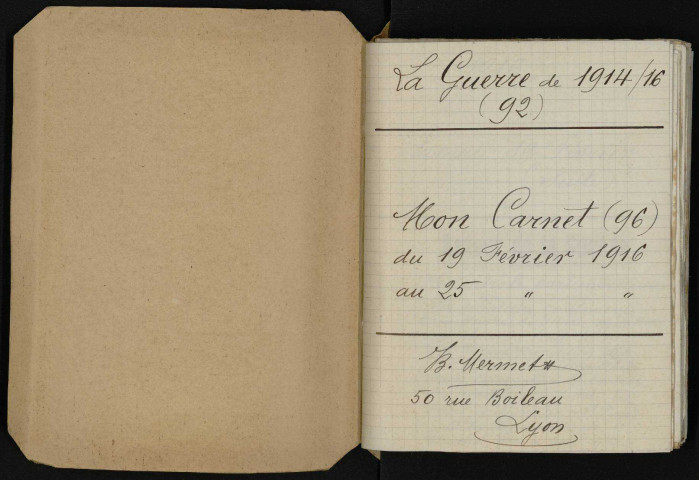 La Guerre de 1914/16
(92)
Mon Carnet (96)
du 19 Février 1916
au 25 " "
B. Mermet
50 rue Boileau
Lyon